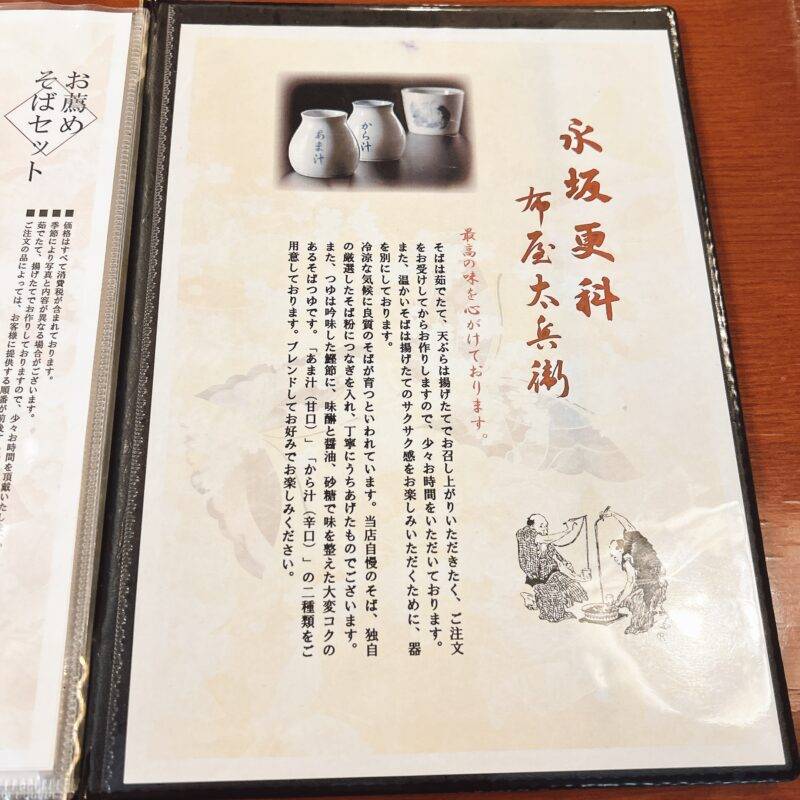 永坂更科
布屋太兵衛
最高の味を心がけております。
そばは茹でたて、天ぷらは揚げたてでお召し上がりいただきたく、ご注文
をお受けしてからお作りしますので、少々お時間をいただいております。
また、温かいそばは揚げたてのサクサク感をお楽しみいただくために、器
を別にしております。
冷涼な気候に良質のそばが育つといわれています。当店自慢のそば、独自
の厳選したそば粉につなぎを入れ、丁寧にうちあげたものでございます。
また、つゆは吟味した鰹節に、味醂と醤油、砂糖で味を整えた大変コクの
あるそばつゆです。「あま汁（甘口）」「から汁（辛口）」の二種類をご
用意しております。ブレンドしてお好みでお楽しみください。
から汁
あま汁
お薦め
そばセット
■価格はすべて消費税が含まれております。
■季節により写真と内容が異なる場合がございます。
■茹でたて、揚げたてでお作りしておりますので、少々お時間を頂戴いたします。
ご注文の品によっては、お客様に提供する順番が前後